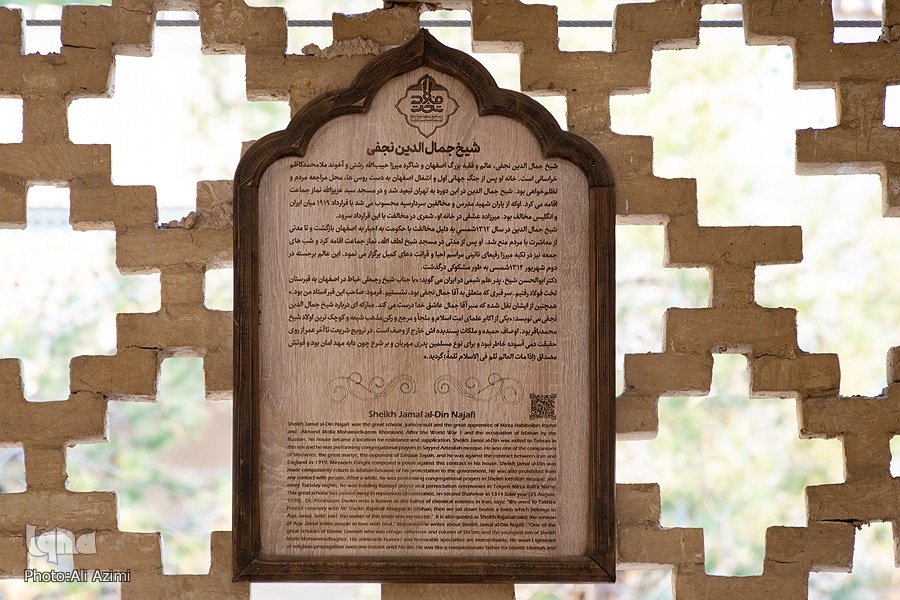 شیخ جمال الدین نجفی
شیخ جمال الدین نجفی، عالم و فقیه بزرگ اصفهان و شاگرد میرزا حبیب‌الله رشتی و آخوند ملامحمدکاظم
خراسانی است. خانه او پس از جنگ جهانی اول و اشغال اصفهان به دست روس ها، محل مراجعه مردم و
تظلم‌خواهی بود. شیخ جمال الدین در این دوره به تهران تبعید شد و در مسجد سید عزیزالله نماز جماعت
اقامه می کرد. او که از یاران شهید مدرس و مخالفین سردارسپه محسوب می شد با قرارداد ۱۹۱۹ میان ایران
و انگلیس مخالف بود. میرزاده عشقی در خانه او، شعری در مخالفت با این قرارداد سرود.
شیخ جمال الدین در سال ۱۳۱۲شمسی به دلیل مخالفت با حکومت به اجبار به اصفهان بازگشت و تا مدتی
از معاشرت با مردم منع شد. او پس از مدتی در مسجد شیخ لطف الله، نماز جماعت اقامه کرد و شب های
جمعه نیز در تکیه میرزا رفیعای نائینی مراسم احیا و قرائت دعای کمیل برگزار می نمود. این عالم برجسته در
دوم شهریور ۱۳۱۴شمسی به طور مشکوکی درگذشت.
دکتر ابوالحسن شیخ، پدر علم شیمی در ایران می گوید: «با جناب شیخ رجبعلی خیاط در اصفهان به قبرستان
تخت فولاد رفتیم. سر قبری که متعلق به آقا جمال نجفی بود، نشستیم. فرمود: صاحب این قبر استاد من بود.»
همچنین از ایشان نقل شده که منبر آقا جمال عاشق خدا درست می کند. مبارکه ای درباره شیخ جمال الدین
نجفی می نویسد: «یکی از اکابر علمای امت اسلام و ملجأ و مرجع و رکن مذهب شیعه و کوچک ترین اولاد شیخ
محمدباقر بود. اوصاف حمیده و ملکات پسندیده اش خارج از وصف است. در ترویج شریعت تا آخر عمر از روی
حقیقت دمی آسوده خاطر نبود و برای نوع مسلمین پدری مهربان و بر شرع چون دایه مهد امان بود و فوتش
مصداق (اذا مات العالم ثلم فی الاسلام ثلمة) گردید.»
Sheikh Jamal al-Din Najafi
Sheikh Jamal al-Din Najafi was the great scholar, jurisconsult and the great apprentice of Mirza Habibollah Rashti
and Akhond Molla Mohamedkazem Khorasani. After the World War 1 and the occupation of Isfahan by the
Russian, his house became a location for resistance and supplication. Sheikh Jamal al-Din was exiled to Tehran in
this era and he was performing congregational prayers in Sayyed Azizollah mosque. He was one of the companions
of Modarres, the great martyr, the opponent of Sardare Sepah, and he was against the contract between Iran and
England in 1919. Mirzadeh Eshghi composed a poem against this contract in his house. Sheikh Jamal al-Din was
made compulsory return to Isfahan because of his protestation to the government, he was also prohibited from
any contact with people. After a while, he was performing congregational prayers in Sheikh lotfollah mosque; and
every Tuesday nights, he was holding Kumayl prayer and pernoctation ceremonies in Tekyeh Mirza Rafi'a Na'ini.
This great scholar has passed away in mysterious circumstance, on second Shahrivar in 1314 Solar year (25 August,
1935). Dr. Abolhasan Sheikh who is known as the father of chemical sciences in Iran says: "We went to Takhte
Foulad cemetery with Mr Sheikh Rajabali Khayyat in Isfahan, then we sat down beside a tomb which belongs to
Aqa Jamal. Sheikh said: the owner of this tomb was my master." It is also quoted as Sheikh Rajabali said: the sermon
of Aqa Jamal trains people in love with God." Mobarake'i writes about Sheikh Jamal al-Din Najafi: "One of the
great scholars of Islamic Ummah who was refuge, reference and column of Shi'ism, and the youngest son of Sheikh
Molla Mohammadbagher. His admirable humor and honorable specialties are indescribable. He wasn't ignorant
of religious propagation even one instant until his die. He was like a compassionate father for Islamic Ummah and
iqna
Photo:Ali Azimi